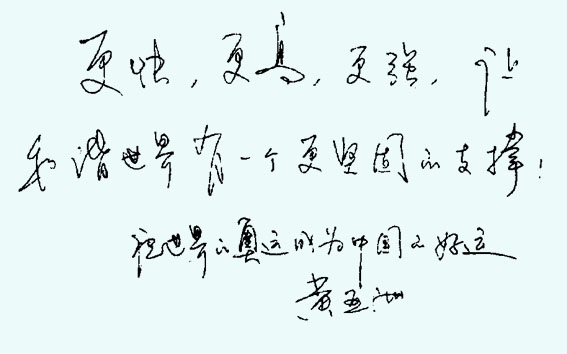 更快，更高，更强，让
和谐世界有一个更坚固的支撑！
祝世界的奥运成为中国的好运
黄亚洲